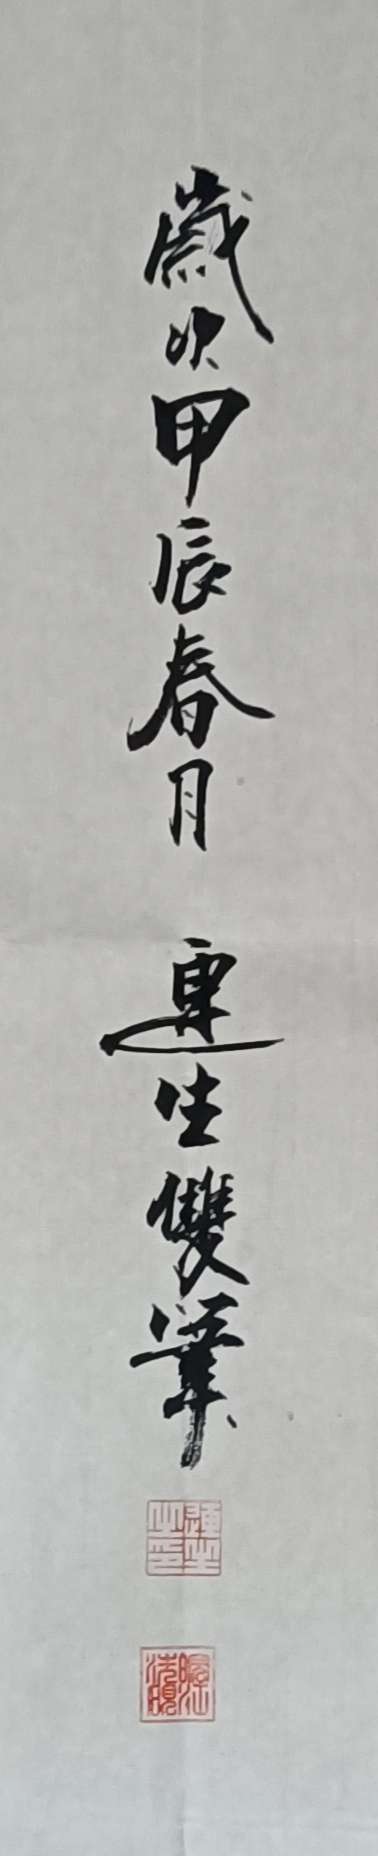 歲次甲辰春月 連生雙筆